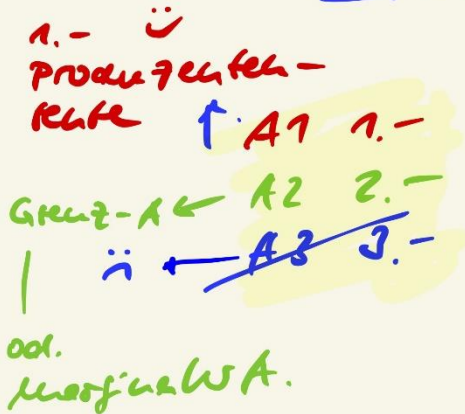 1.-
Produzenten-
rente
A1 1.-
Grenz-A A2 2.-
A3 3.-
od.
marginaler A.